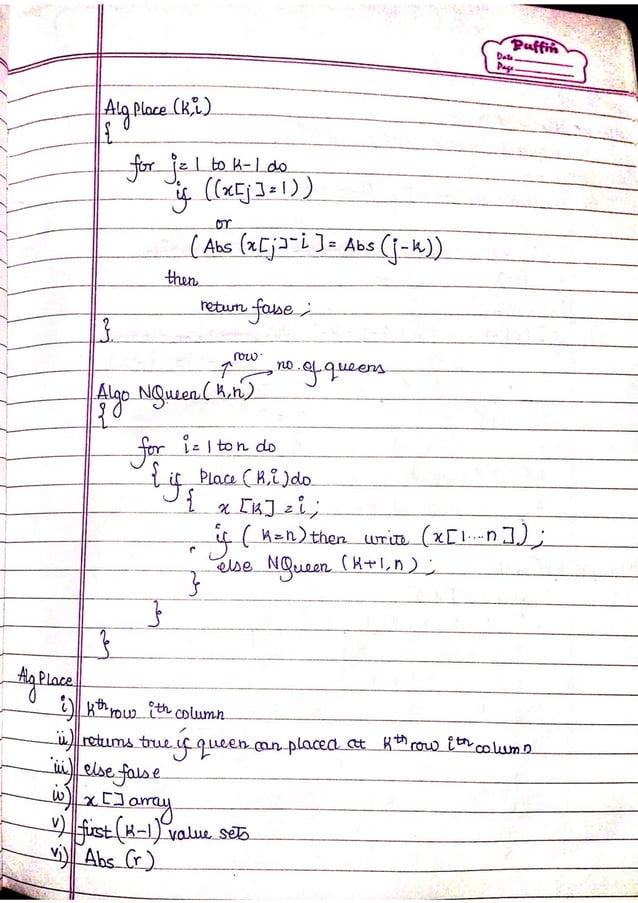 Puffin
Date
Page
Alg Place (k,i)
{
for j=1 to k-1 do
if ((x[j]=1))
or
(Abs (x[j]-i]=Abs(j-k))
then
return false;
}
row.
no. of queens
Algo NQueen(k,n)
{
for i=1 to n do
{ if Place (k,i) do
{ x [k] =i;
if (k=n) then write (x[1...n]);
else NQueen (k+1,n);
}
}
}
Alg Place
i) kth row ith column
ii) returns true if queen can placed at kth row ith column
iii) else false
iv) x [] array
v) first (k-1) value sets
vi) Abs (r)